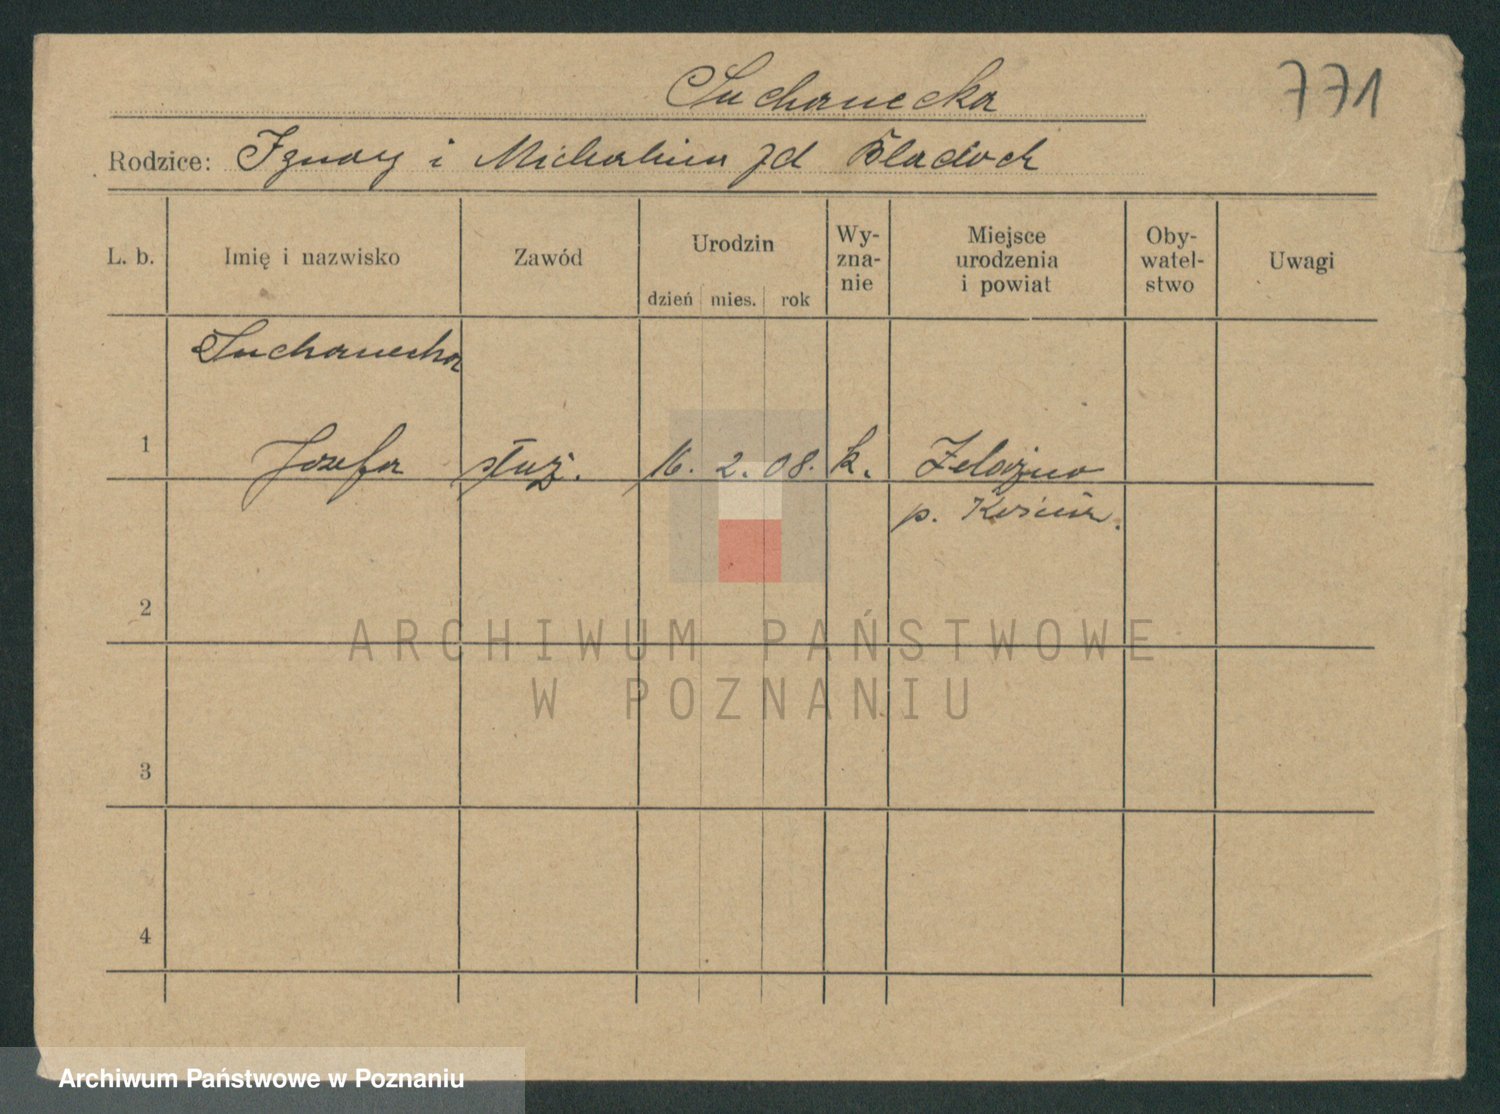 Suchanecka
771
Rodzice: Ignacy i Michalina zd Bladoch
L. b. Imię i nazwisko Zawód Urodzin dzień mies. rok Wy-zna-nie Miejsce urodzenia i powiat Oby-watel-stwo Uwagi
Suchanecka
1 Józefa służ. 16. 2. 08. k. Żelazno
p. Kościan.
2
ARCHIWUM PAŃSTWOWE
W POZNANIU
3
4
Archiwum Państwowe w Poznaniu